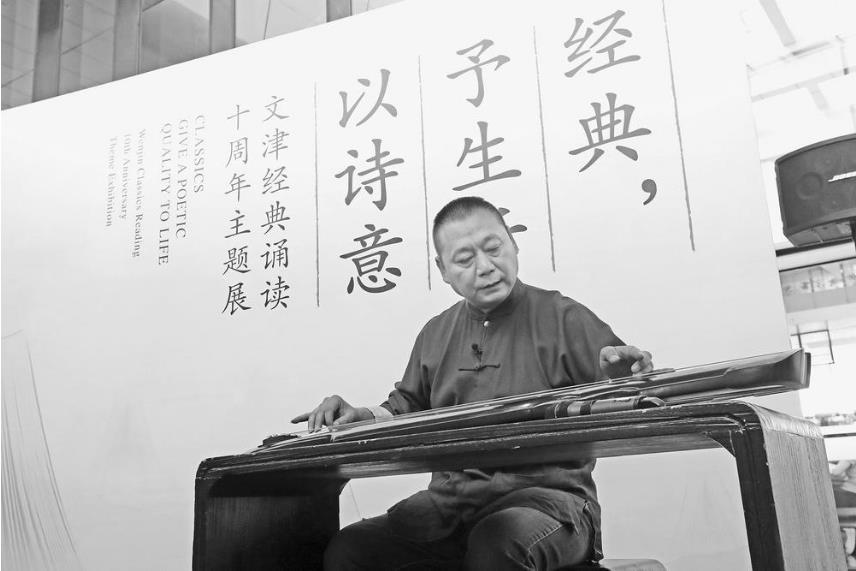 经典，
予生
以诗意
文津经典诵读
十周年主题展
CLASSICS
GIVE A POETIC
QUALITY TO LIFE
Wenjin Classics Reading
10th Anniversary
Theme Exhibition